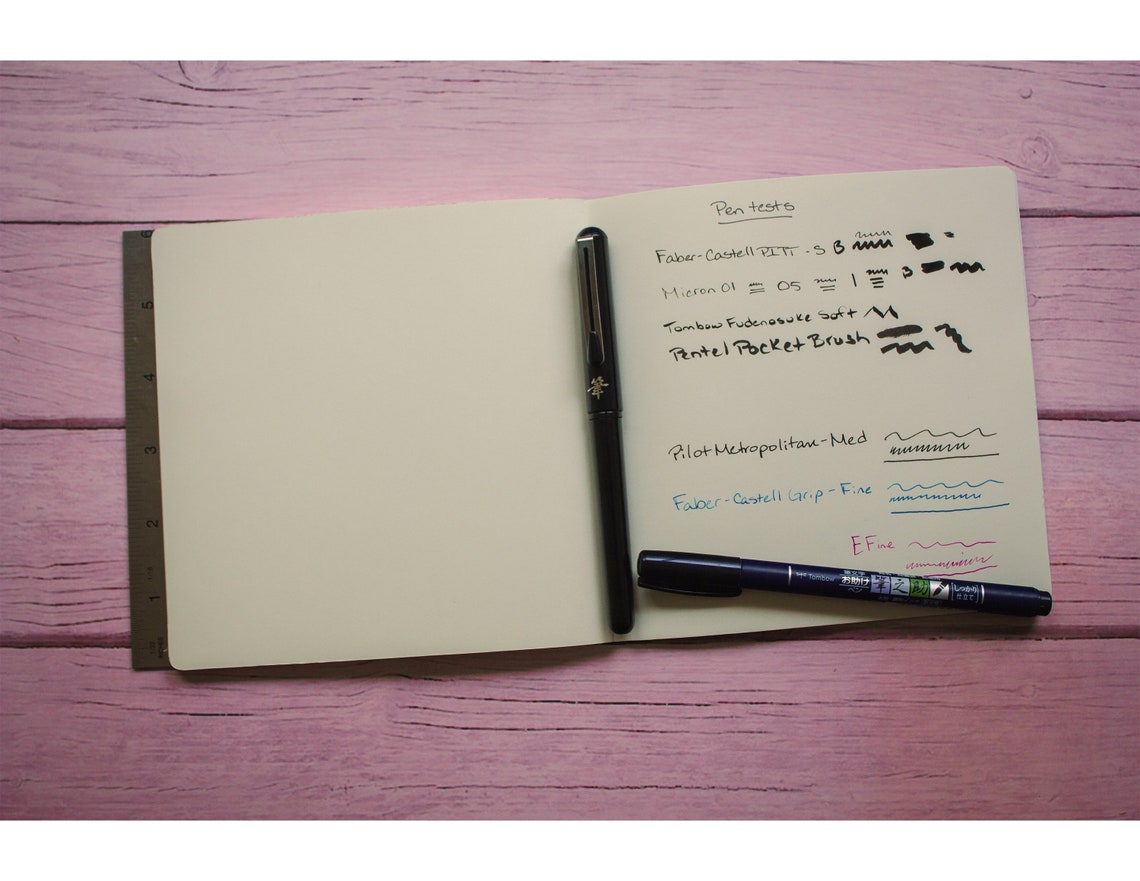 Pen tests
Faber-Castell PITT - S B
Micron 01 05 1 3
Tombow Fudenosuke Soft
Pentel Pocket Brush
Pilot Metropolitan - Med
Faber-Castell Grip - Fine
EFine
筆
Tombow お助け 筆之助 しっかり仕立て
6
5
4
3
2
1